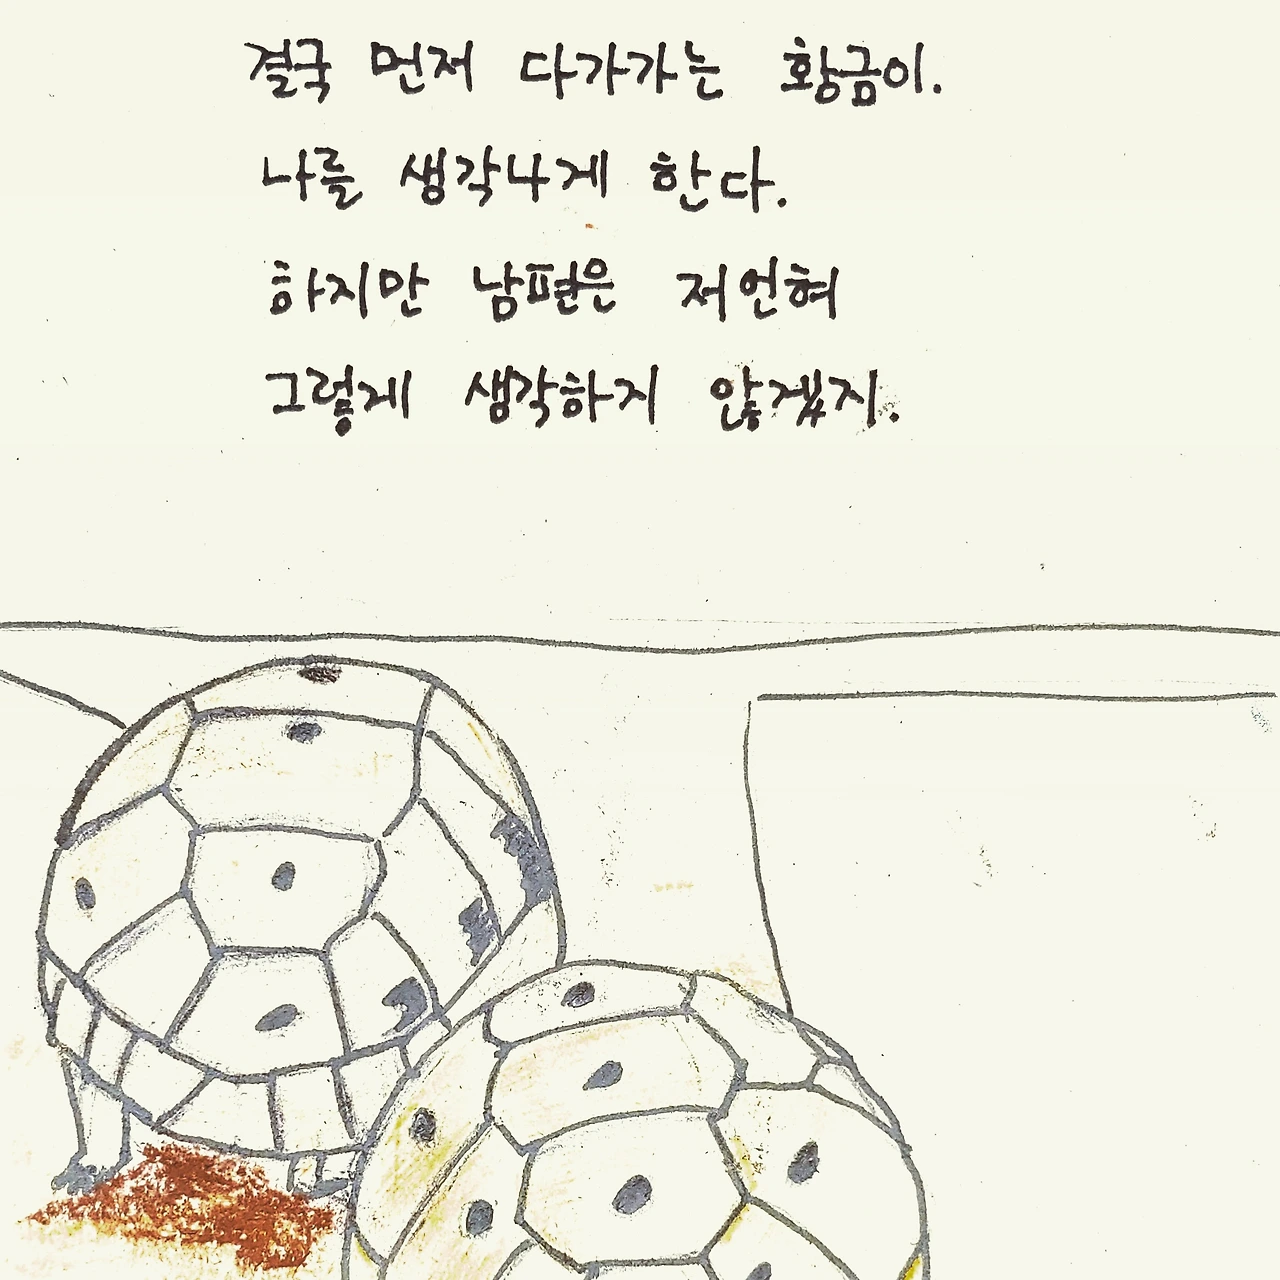 결국 먼저 다가가는 황금이.
나를 생각나게 한다.
하지만 남편은 저언혀
그렇게 생각하지 않겠지.